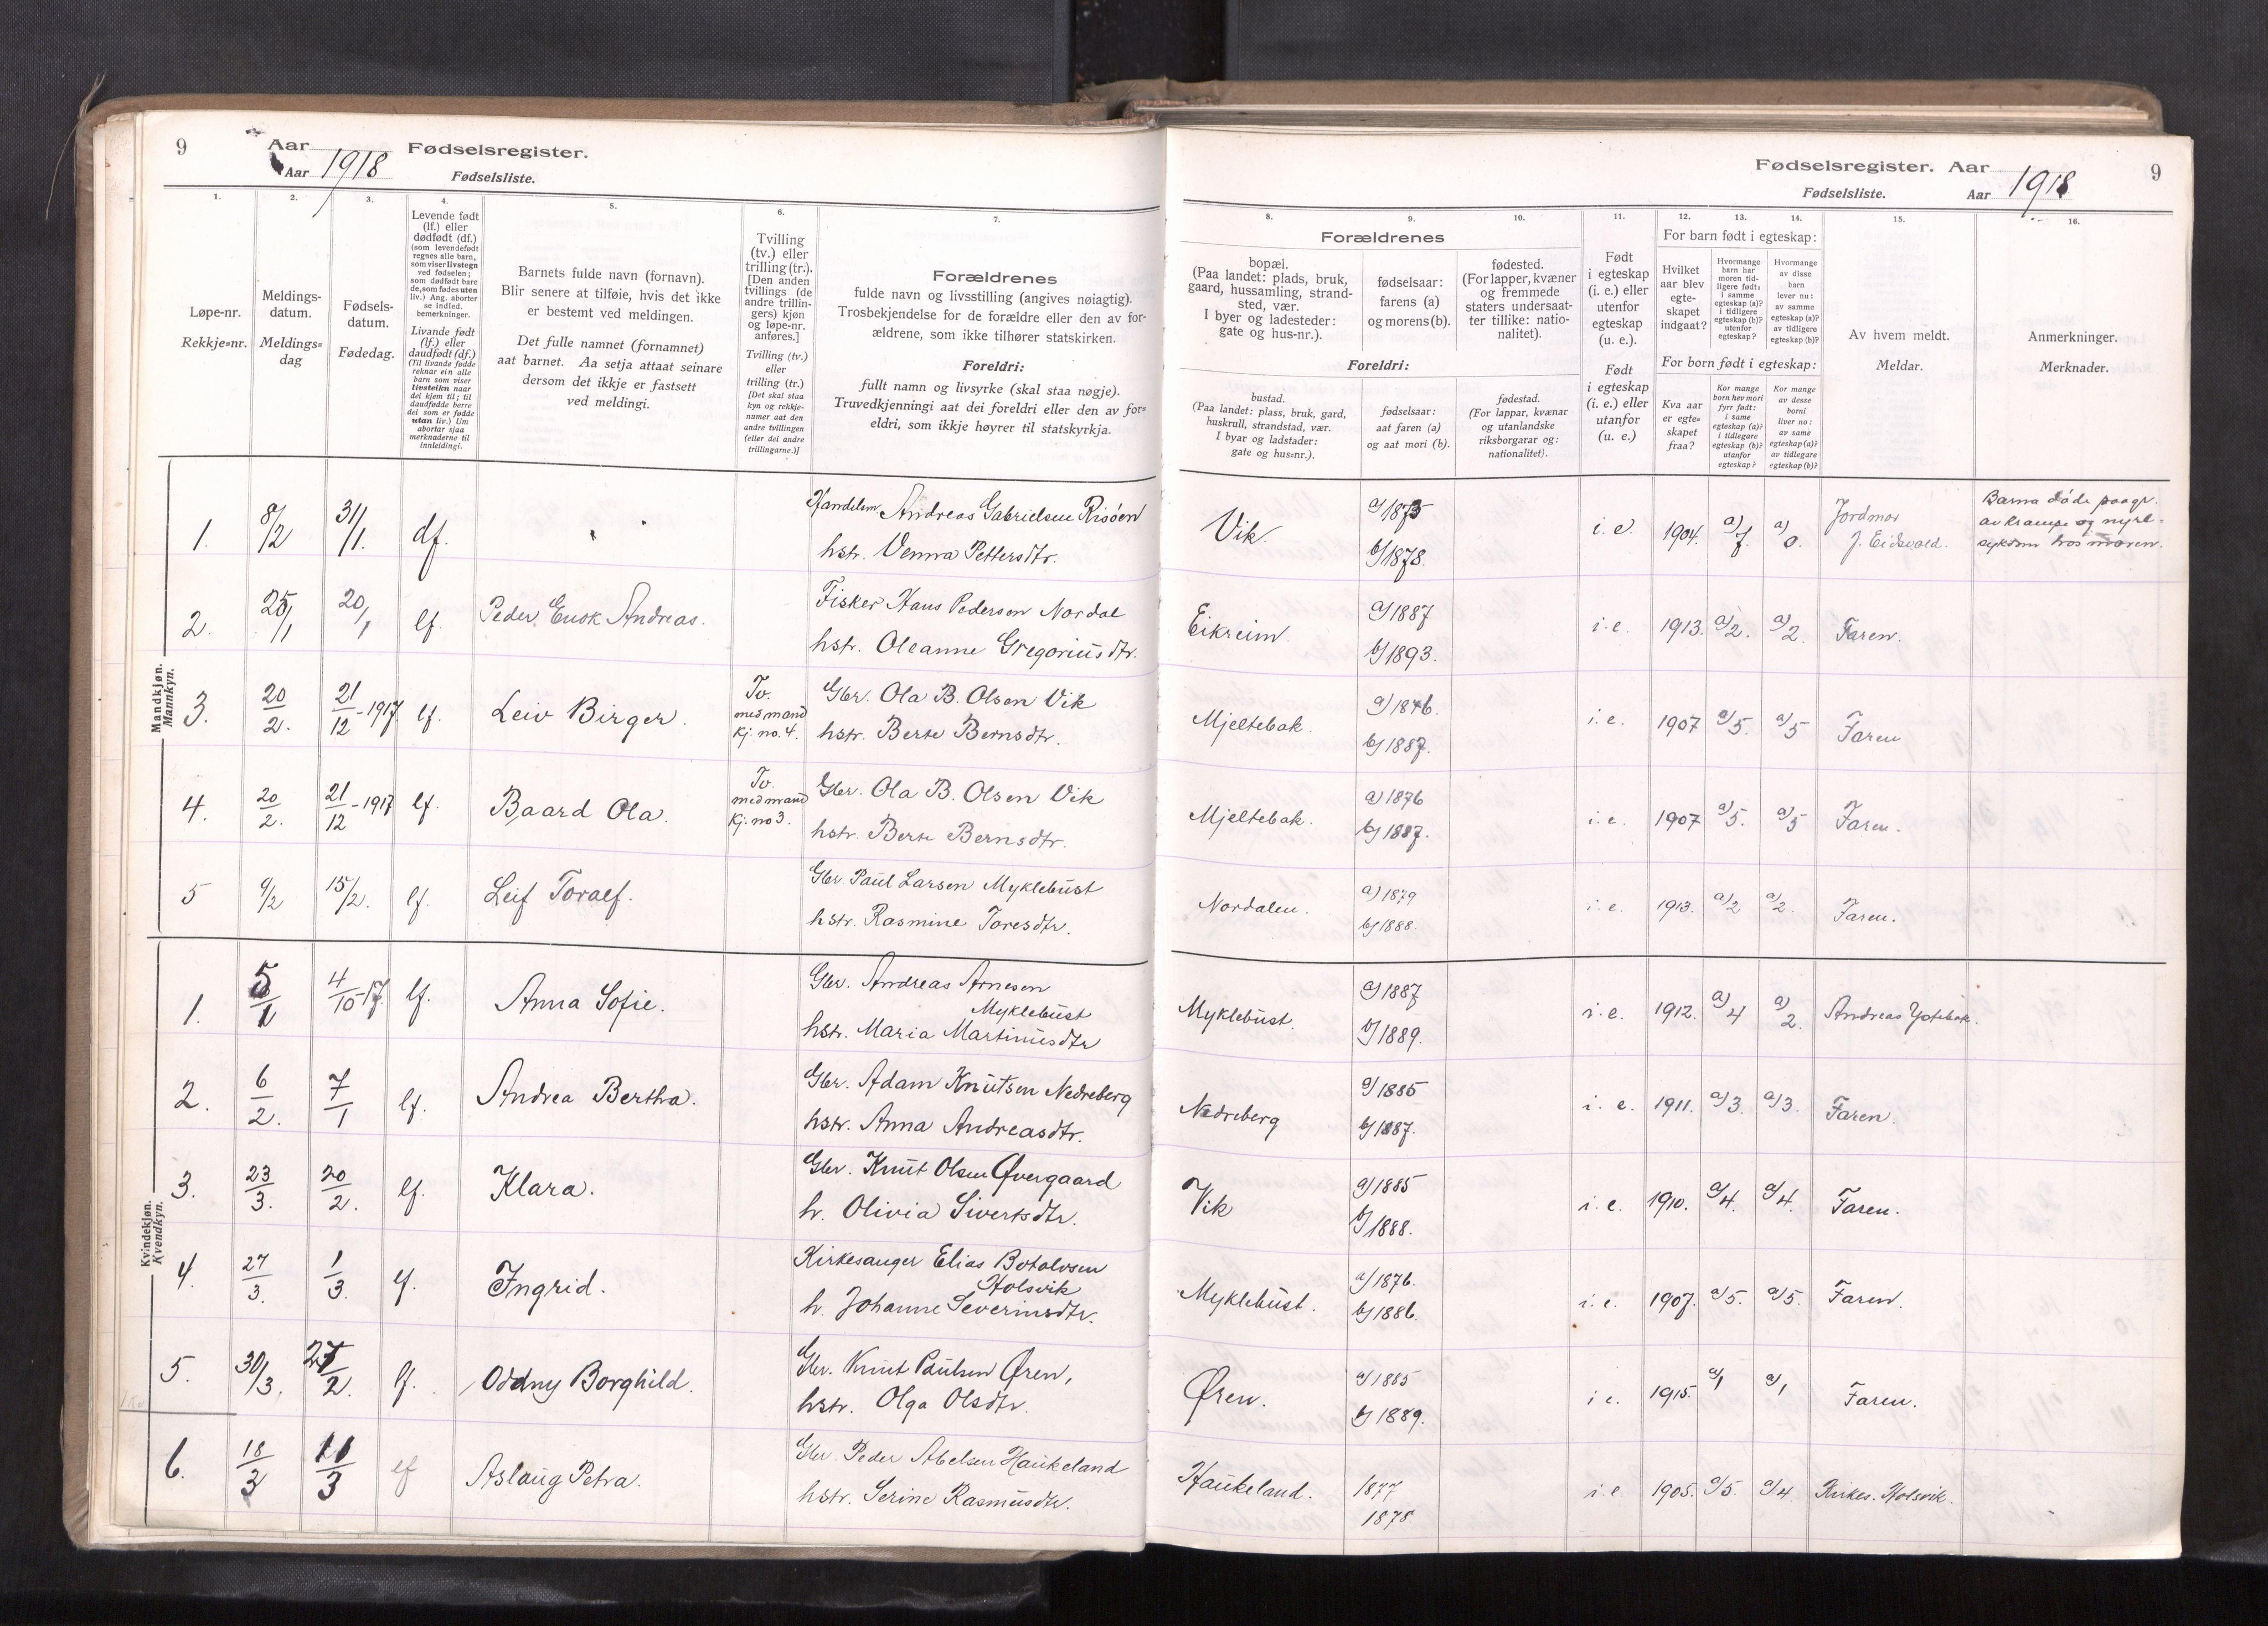 9
Aar
Fødselsregister.
Aar 1918
Fødselsliste.
1.
2.
3.
4.
5.
6.
7.
Løpe-nr.
Rekkje-nr.
Meldings-
datum.
Meldings-
dag
Fødsels-
datum.
Fødedag.
Levende født
(lf.) eller
dødfødt (df.)
(som levendefødt
regnes alle barn,
som viser livstegn
ved fødselen;
som dødfødt bare
de, som fødes uten
liv.) Ang. aborter
se indled.
bemerkninger.
Livande født
(lf.) eller
daudfødt (df.)
(Til livande fødde
reknar ein alle
barn som viser
livsteikn naar
dei kjem til; til
daudfødde berre
dei som er fødde
utan liv.) Um
abortar sjaa
merknaderne til
innleidingi.
Barnets fulde navn (fornavn).
Blir senere at tilføie, hvis det ikke
er bestemt ved meldingen.
Det fulle namnet (fornamnet)
aat barnet. Aa setja attaat seinare
dersom det ikkje er fastsett
ved meldingi.
Tvilling
(tv.) eller
trilling (tr.).
[Den anden
tvillings (de
andre trillin-
gers) kjøn
og løpe-nr.
anføres.]
Tvilling (tv.)
eller
trilling (tr.)
[Det skal staa
kyn og rekkje-
numer aat den
andre tvillingen
(eller dei andre
trillingarne.)]
Forældrenes
fulde navn og livsstilling (angives nøiagtig).
Trosbekjendelse for de forældre eller den av for-
ældrene, som ikke tilhører statskirken.
Foreldri:
fullt namn og livsyrke (skal staa nøgje).
Truvedkjenningi aat dei foreldri eller den av for-
eldri, som ikkje høyrer til statskyrkja.
Mandkjøn.
Mannkyn.
1. 8/2 31/1. df. Handelsm. Andreas Gabrielsen Risøen
hstr. Venna Pettersdtr.
2. 25/1 20/1 lf. Peder Andreas. Fisker Hans Pedersen Nordal
hstr. Oleanne Gregoriusdtr.
3. 20/2. 21/12-1917 lf. Leiv Birger. Tv. med mand kj. no. 4. Gbr. Ola B. Olsen Vik
hstr. Berte Bernsdtr.
4. 20/2. 21/12-1917 lf. Baard Ola. Tv. med mand kj. no 3. Gbr. Ola B. Olsen Vik
hstr. Berte Bernsdtr.
5 9/2 15/2. lf. Leif Toralf. Gbr Paul Larsen Myklebust
hstr. Rasmine Toresdtr.
Kvindekjøn.
Kvendkyn.
1. 5/1 4/10-17 lf. Anna Sofie. Gbr. Andreas Arnesen
Myklebust
hstr. Maria Martinusdtr
2. 6/2. 7/1 lf. Andrea Bertha. Gbr. Adam Knutsen Nedreberg
hstr. Anna Andreasdtr.
3. 23/3. 20/2. lf. Klara. Gbr. Knut Olsen Øvergaard
h. Olivia Sivertsdtr.
4. 27/3. 1/3. lf. Ingrid. Kirkesanger Elias Botolvsen
Holsvik
h. Johanne Severinsdtr.
5. 30/3. 2. lf. Oddny Borghild. Gbr. Knut Paulsen Øren,
hstr. Olga Olsdtr.
6. 18/3 11/3 lf Aslaug Petra. Gbr Peder Abelsen Haukeland
hstr. Serine Rasmusdtr.
Fødselsregister. Aar
9
Fødselsliste.
Aar 1918
8.
9.
10.
11.
12.
13.
14.
15.
16.
Forældrenes
bopæl.
(Paa landet: plads, bruk,
gaard, hussamling, strand-
sted, vær.
I byer og ladesteder:
gate og hus-nr.).
fødselsaar:
farens (a)
og morens (b).
fødested.
(For lapper, kvæner
og fremmede
staters undersaat-
ter tillike: natio-
nalitet).
Foreldri:
bustad.
(Paa landet: plass, bruk, gard,
huskrull, strandstad, vær.
I byar og ladstader:
gate og hus-nr.).
fødselsaar:
aat faren (a)
og aat mori (b).
fødestad.
(For lappar, kvænar
og utanlandske
riksborgarar og:
nationalitet).
Født
i egteskap
(i. e.) eller
utenfor
egteskap
(u. e.).
Født
i egteskap
(i. e.) eller
utanfor
(u. e.)
For barn født i egteskap:
Hvilket
aar blev
egte-
skapet
indgaat?
Hvormange
barn har
moren tid-
ligere født:
i samme
egteskap (a)?
i tidligere
egteskap (b)?
utenfor
egteskap?
Hvormange
av disse
barn
lever nu:
av samme
egteskap (a)?
av tidligere
egteskap (b)?
For born født i egteskap:
Kva aar
er egte-
skapet
fraa?
Kor mange
born hev mori
fyrr født:
i same
egteskap (a)?
i tidlegare
egteskap (b)?
utanfor
egteskap?
Kor mange
av desse
borni
liver no:
av same
egteskap (a)?
av tidlegare
egteskap (b)?
Av hvem meldt.
Meldar.
Anmerkninger.
Merknader.
Vik. a/1875 b/1878. i. e. 1904. a/7. a/0. Jordmor
J. Eidsvold.
Barna døde paa gr.
av krampe og nyre-
sykdom hos moren.
Eikreim. a/1887 b/1893. i. e. 1913. a/2. a/2. Faren.
Mjeltebak. a/1876. b/1887. i. e. 1907 a/5. a/5 Faren
Mjeltebak. a)1876 b/1887. i. e. 1907 a/5. a/5 Faren.
Nordalen. a)1879 b/1888. i. e. 1913. a/2 a/2. Faren.
Myklebust. a/1887 b/1889. i. e. 1912. a/4 a/2. Andreas
Nedreberg a/1885 b/1887. i. e. 1911. a/3. a/3. Faren.
Vik a/1885 b/1888. i. e. 1910. a/4. a/4. Faren.
Myklebust. a/1876. b/1886. i. e. 1907. a/5. a/5. Faren.
Øren. a/1885 b/1889. i e. 1915. a/1 a/1 Faren.
Haukeland. 1877 1878 i e 1905. a/5. a/4. Kirkes. Holsvik.